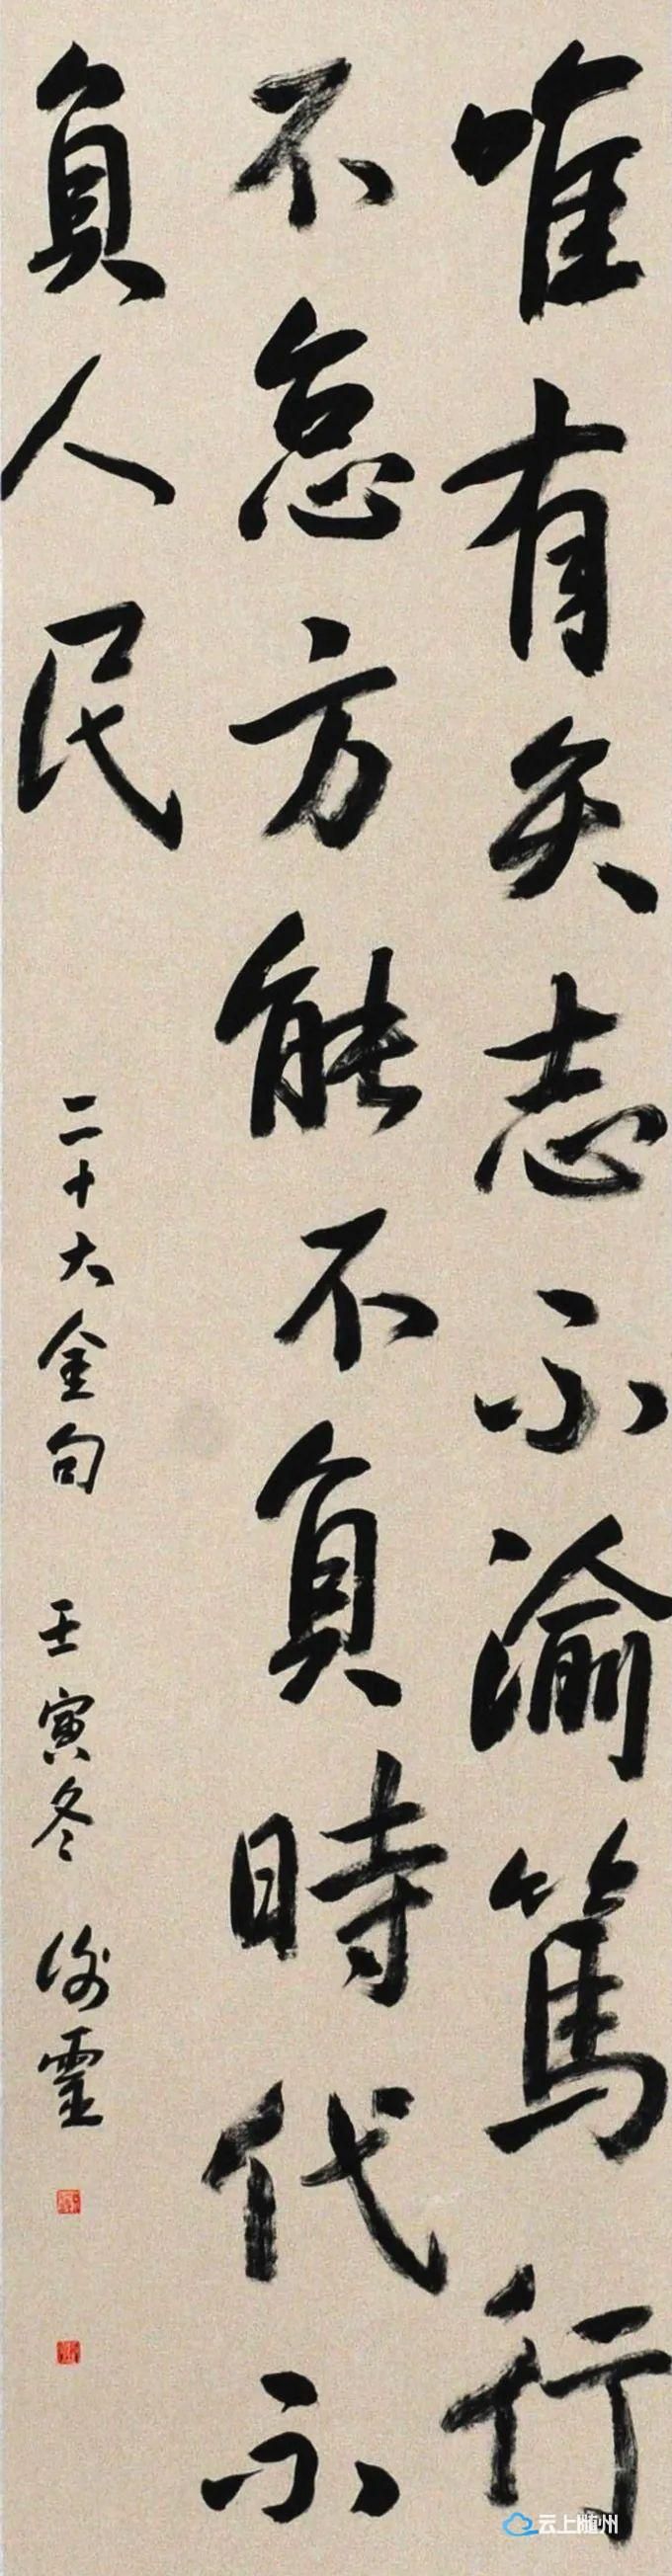 唯有矢志不渝篤行
不怠方能不負時代不
負人民
二十大金句 壬寅冬
云上随州